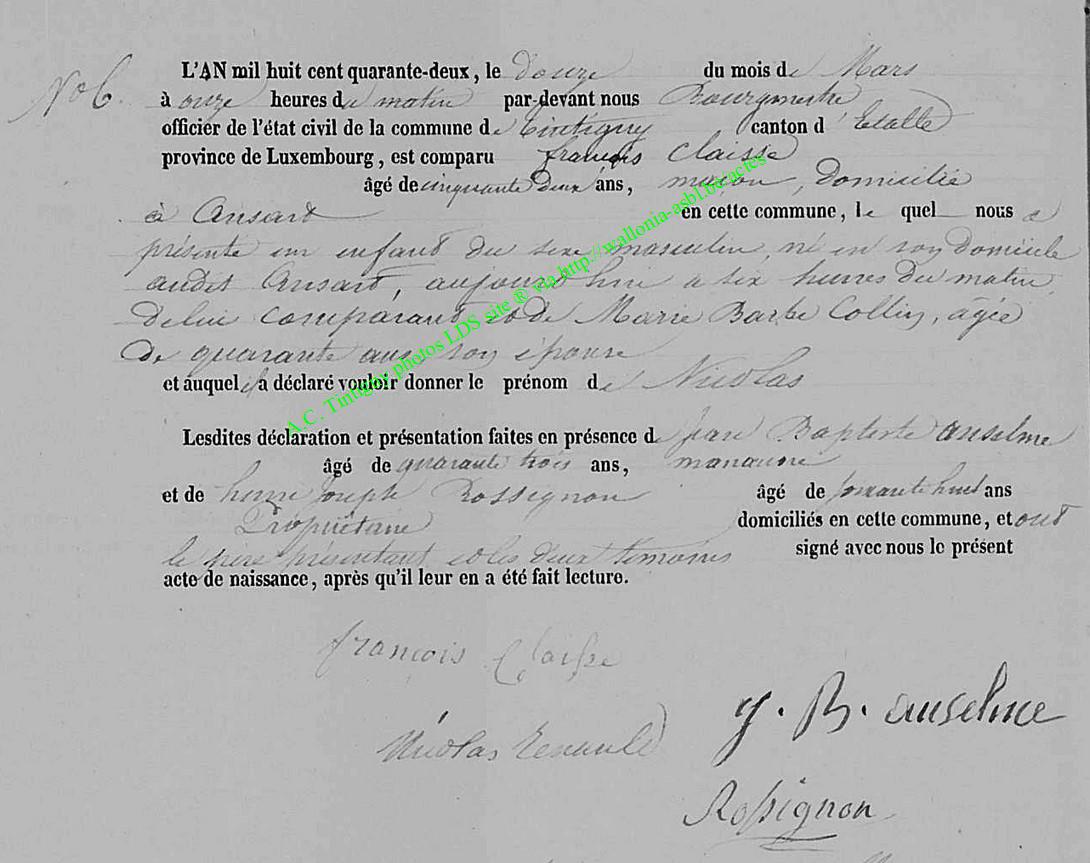 No 6.
L'AN mil huit cent quarante-deux, le Douze du mois de Mars
à onze heures du matin par-devant nous Bourgmestre
officier de l'état civil de la commune de Tintigny canton d'Etalle
province de Luxembourg, est comparu françois Claisse
âgé de cinquante deux ans, maçon, Domicilié
à Ansart en cette commune, lequel nous a
présenté un enfant du sexe masculin, né en son Domicile
audit Ansart, aujourd'hui a six heures du matin
De lui comparant et de Marie Barbe Collin, agée
De quarante ans son épouse
et auquel il a déclaré vouloir donner le prénom de Nicolas
Lesdites déclaration et présentation faites en présence de jean Baptiste anselme
âgé de quarante trois ans, manœuvre
et de henri joseph Rossignon âgé de soixante huit ans
Propriétaire domiciliés en cette commune, et ont
le père présentant et les deux témoins signé avec nous le présent
acte de naissance, après qu'il leur en a été fait lecture.
françois Claisse
j. B. anselme
Nicolas
Rossignon
A.C. Tintigny photos LDS site ® via http://wallonia-asbl.be/actes